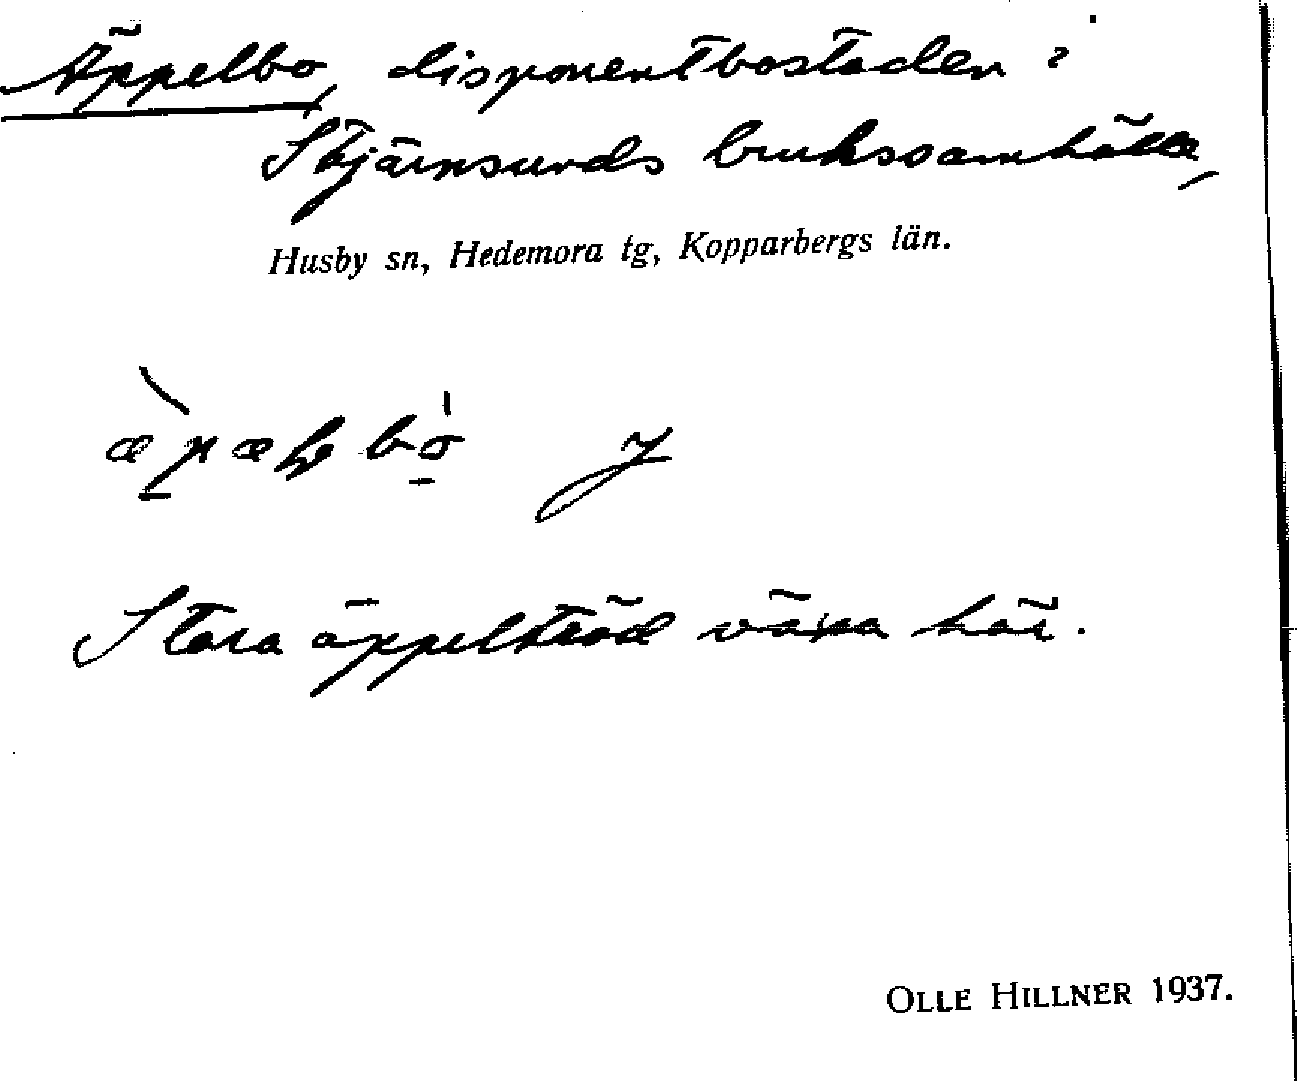 Äppelbo, disponentbostaden i
Stjärnsunds brukssamhälle,
Husby sn, Hedemora tg, Kopparbergs län.
Stora äppelträd växa här.
OLLE HILLNER 1937.